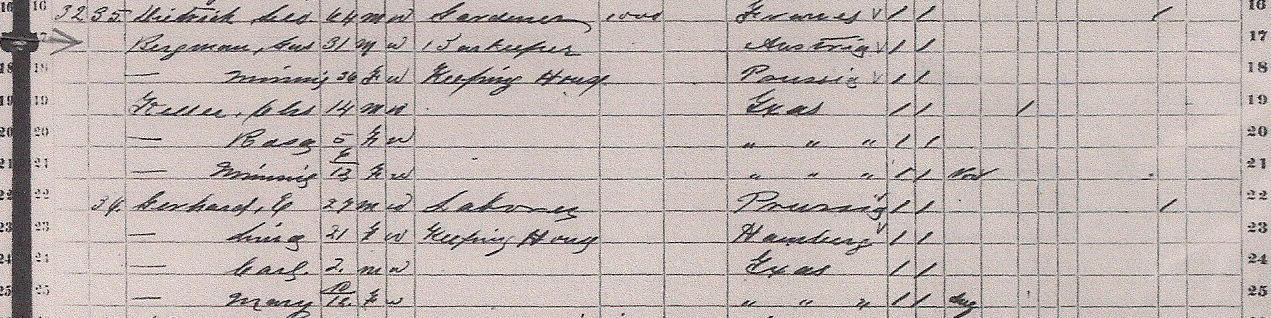 16 16 32 35 Dietrick, Geo. 64 m w Gardener 1000 / / / 16
17 Bergman, Gus 31 M w Barkeeper Austria / / 17
18 18 — Minnie 36 F w Keeping House Prussia / / 18
19 19 Keller, Chs 14 m w Texas / / / 19
20 20 — Rosa 5 F w " " " / / 20
21 21 — Minnie /12 F w " " " / / Nov 21
22 22 34 Gerhard, E 27 m w Laborer Prussia / / / 22
23 23 — Lina 21 F w Keeping House Hamburg / / 23
24 24 — Carl 2 m w Texas / / 24
25 25 — Mary 10/12 F w " " " / / Aug 25